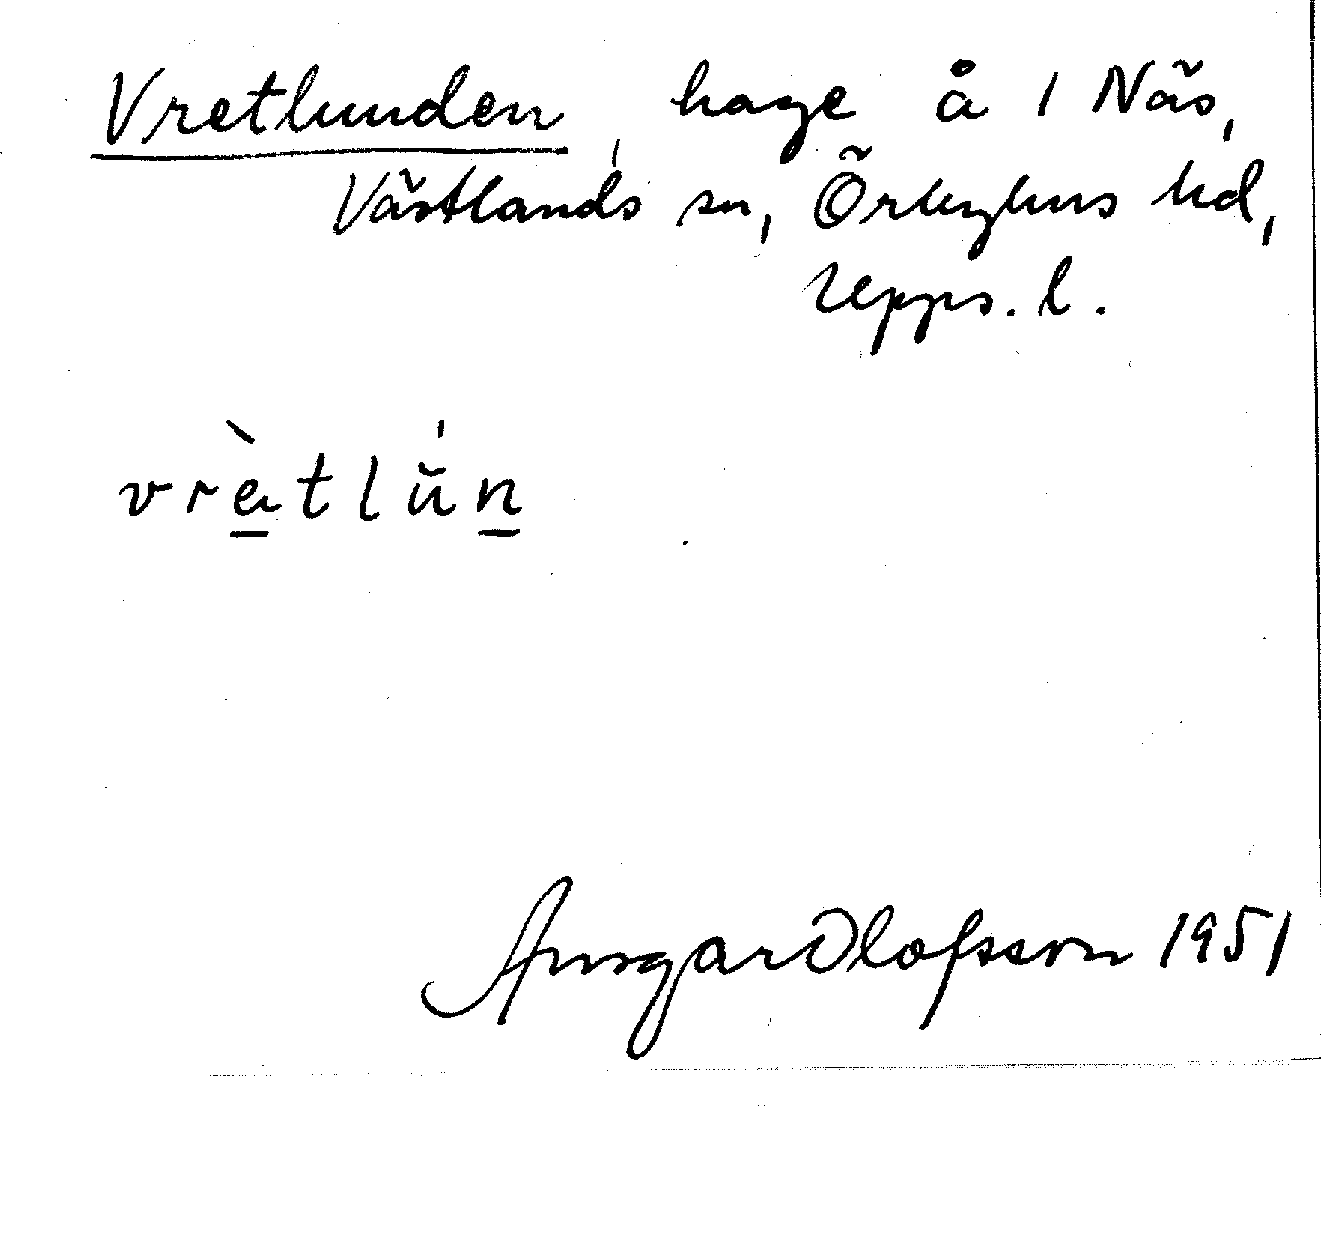 Vretlunden, hage å 1 Näs,
Västlands sn, Örbyhus hd,
Upps. l.
vrètlún
Ansgar Olofsson 1951